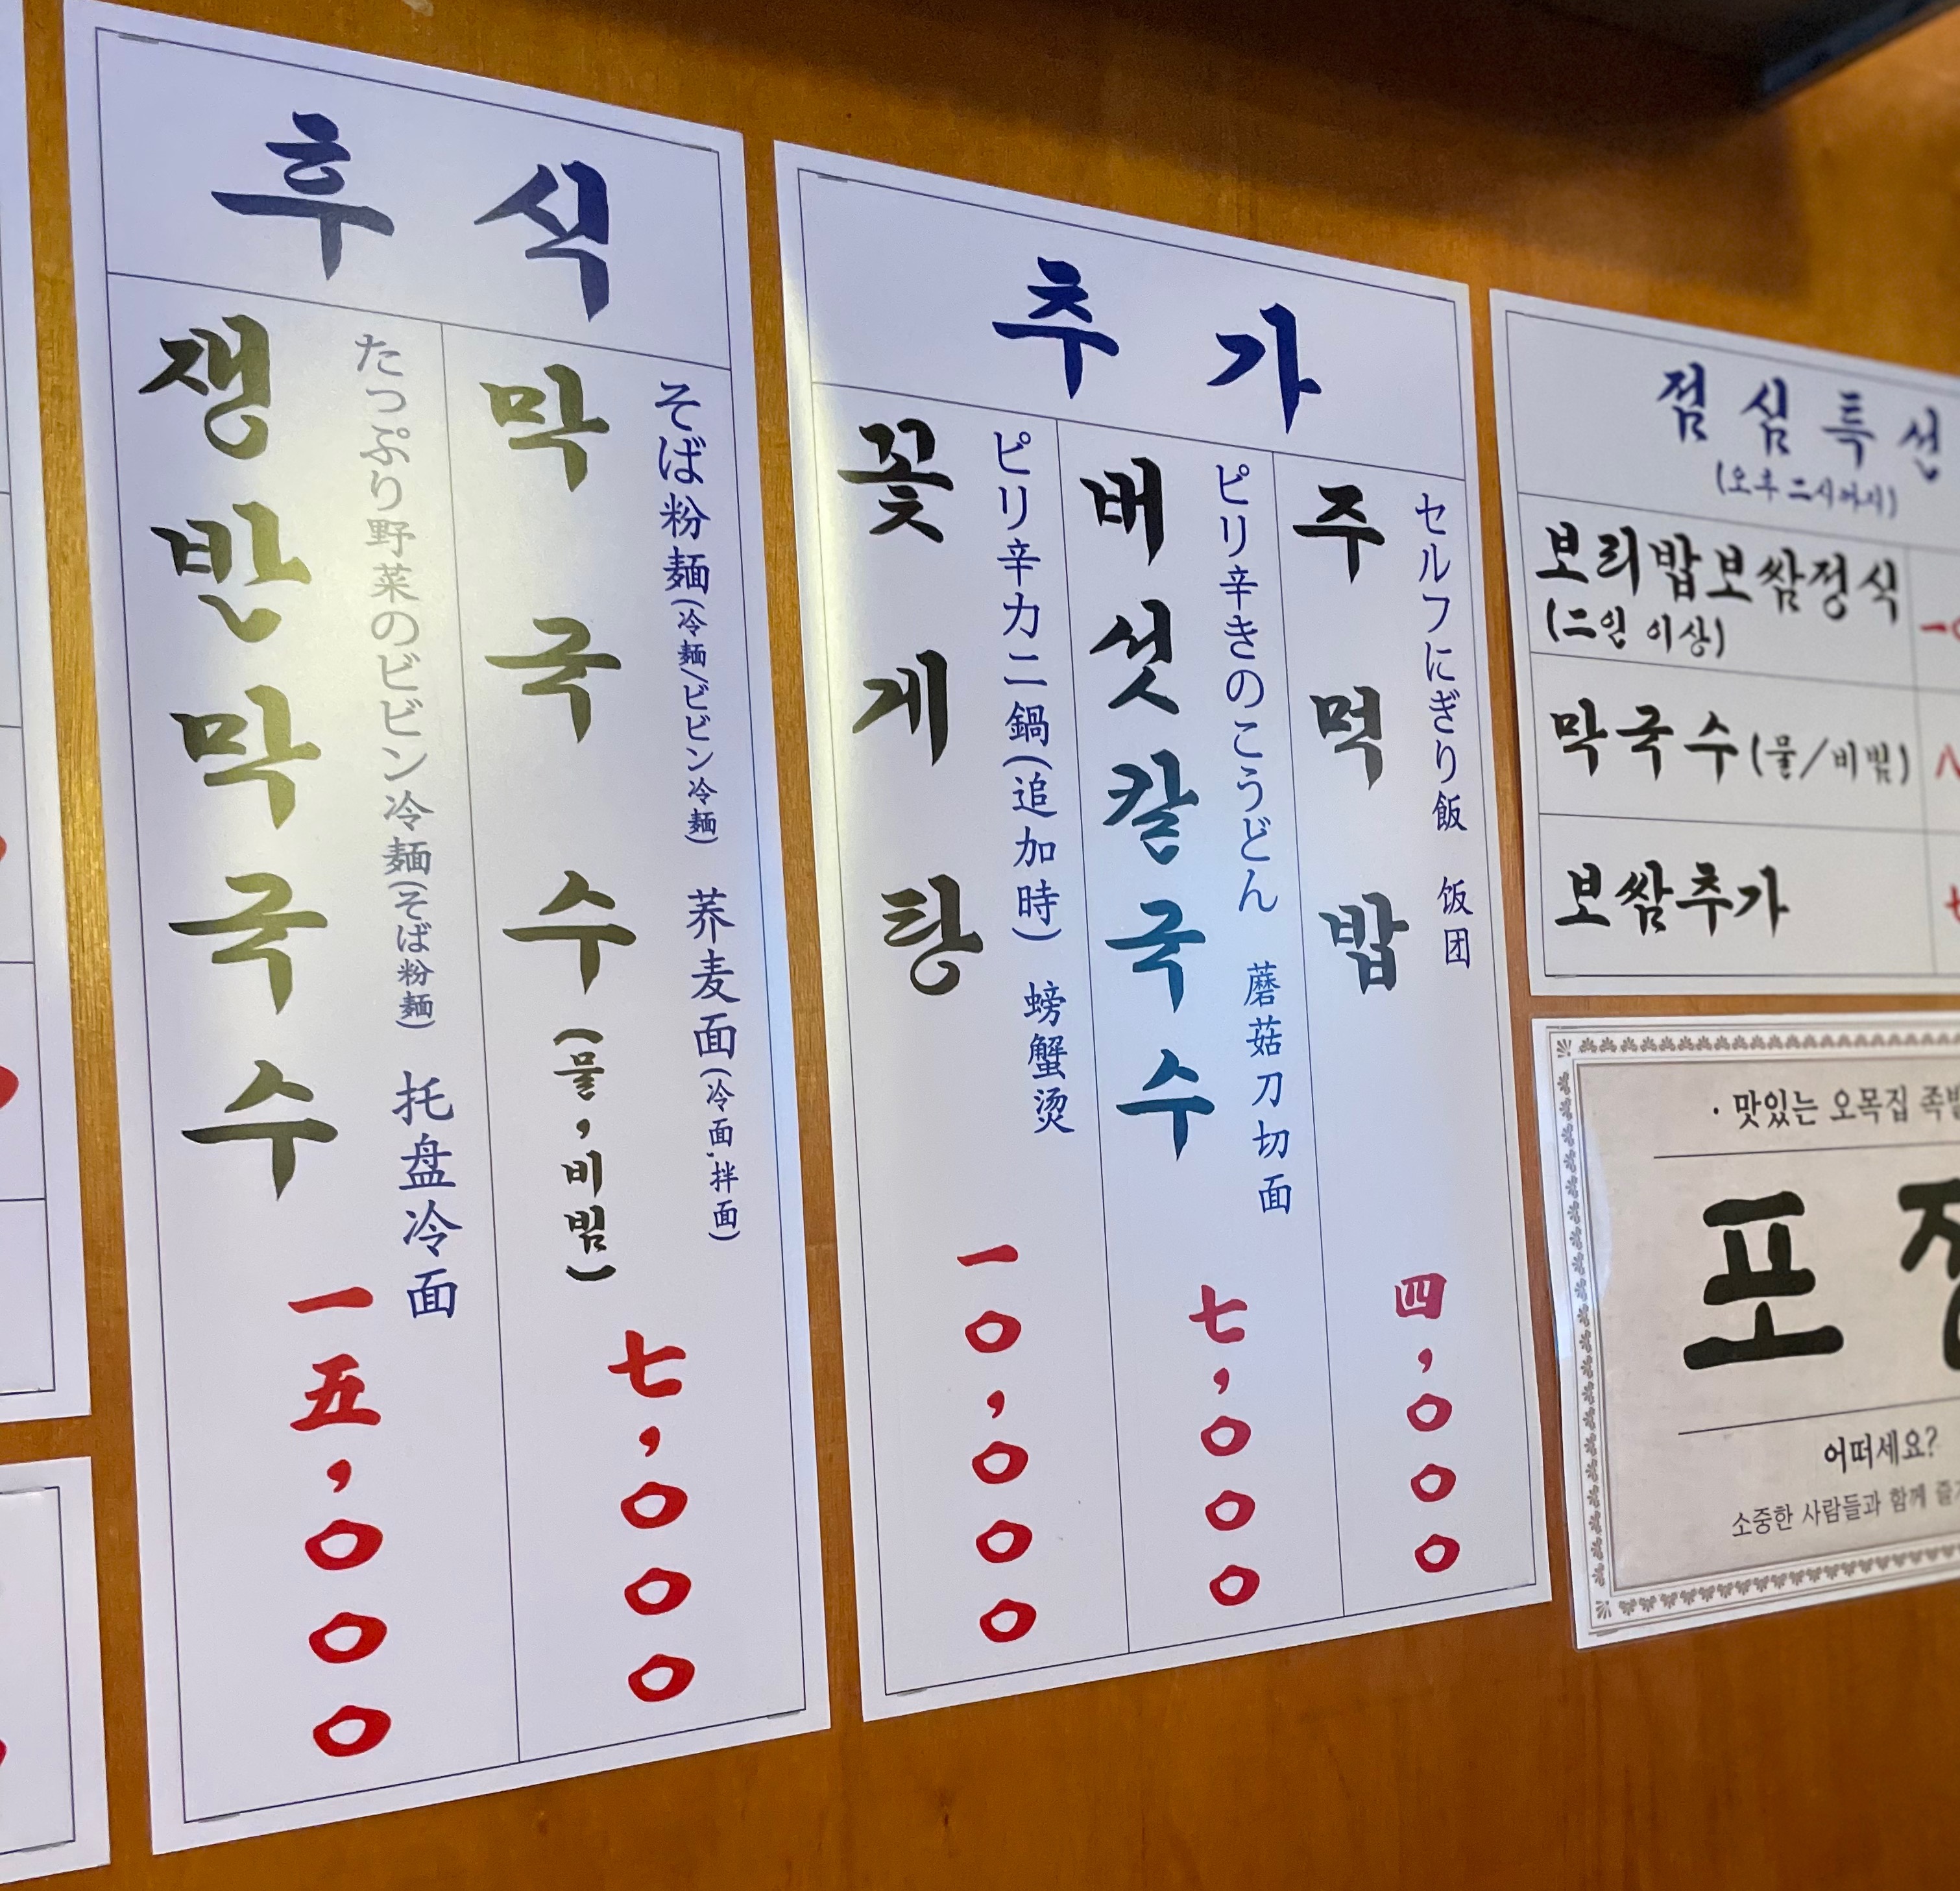 후식
쟁반막국수
たっぷり野菜のビビン冷麺(そば粉麺) 托盘冷面
一五,〇〇〇
막국수(물,비빔)
そば粉麺(冷麺/ビビン冷麺) 荞麦面(冷面,拌面)
七,〇〇〇
추가
꽃게탕
ピリ辛カニ鍋(追加時) 螃蟹烫
一〇,〇〇〇
버섯칼국수
ピリ辛きのこうどん 蘑菇刀切面
七,〇〇〇
주먹밥
セルフにぎり飯 饭团
四,〇〇〇
점심특선
(오후 二시까지)
보리밥보쌈정식
(二인 이상)
막국수(물/비빔)
보쌈추가
· 맛있는 오목집 족발
포
어떠세요?
소중한 사람들과 함께